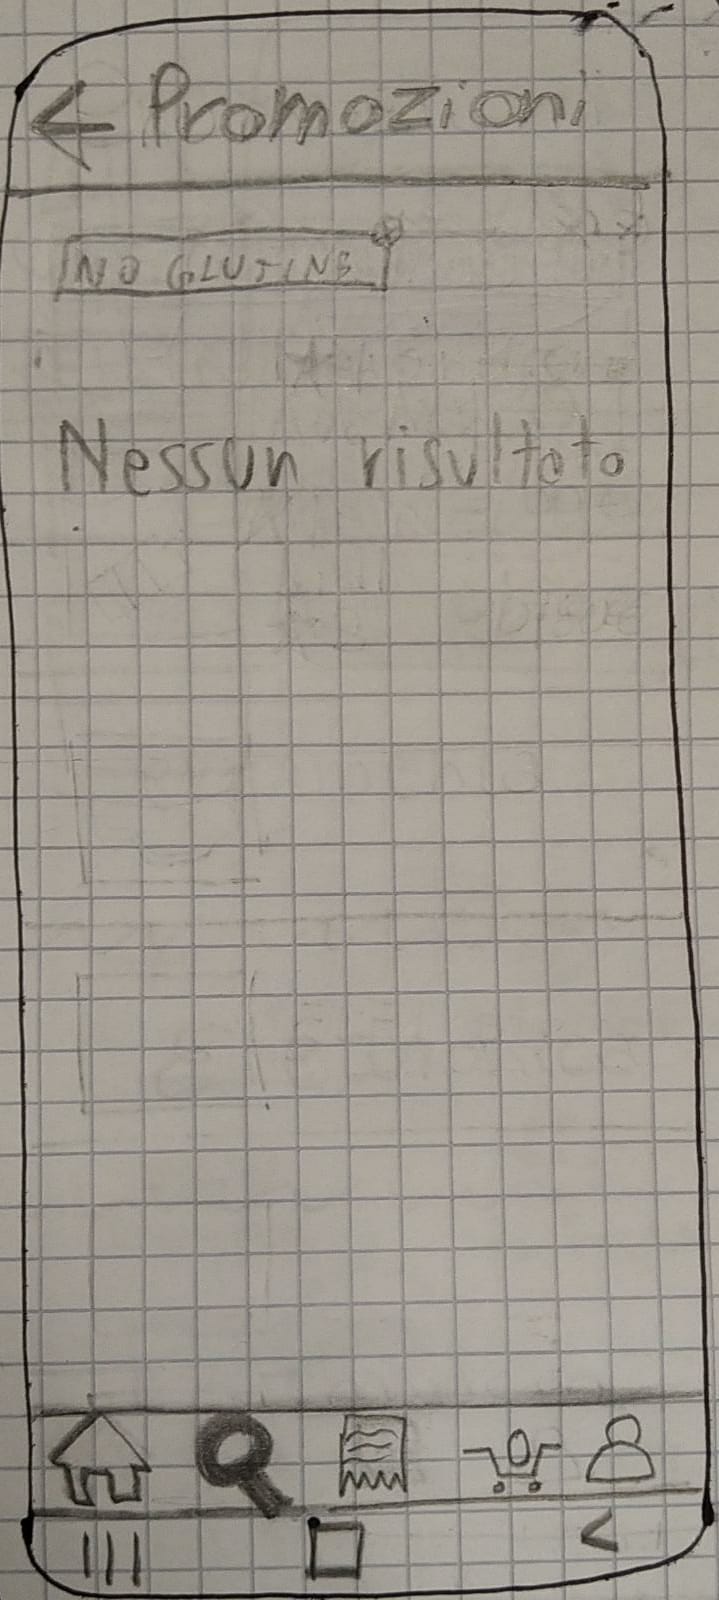 ← Promozioni
NO GLUTINE
Nessun risultato